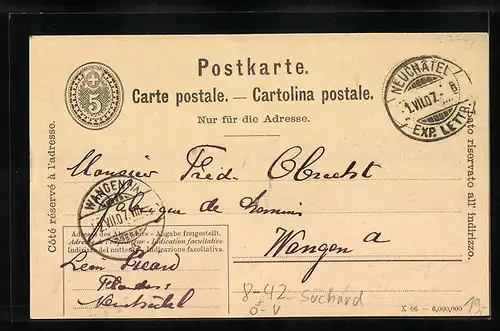 Postkarte.
Carte postale. — Cartolina postale.
Nur für die Adresse.
5
NEUCHÂTEL
1.VII.07.
EXP. LETTR.
Côté réservé à l'adresse.
Lato riservato all' indirizzo.
Monsieur Fréd Obrecht
WANGEN
VII.07
Fabrique de
Wangen a
Adresse des Absenders - Angabe freigestellt.
Adresse de l'expéditeur - Indication facultative
Indirizzo del mittente - Indicazione facoltativa.
Neuchâtel
8-42 Suchard
0-V
X 06 — 6,000,000
19.-